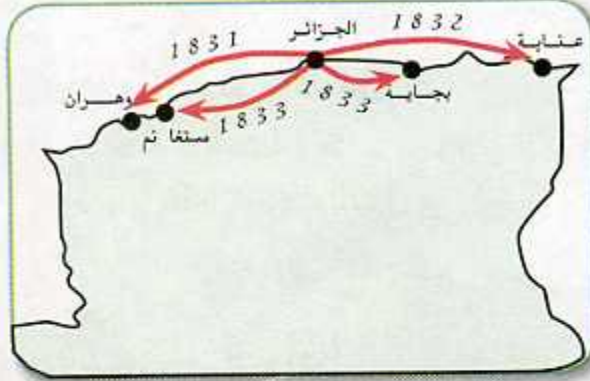 الجزائر
1832
عنابة
1831
بجاية
1833
وهران
1833
مستغا نم